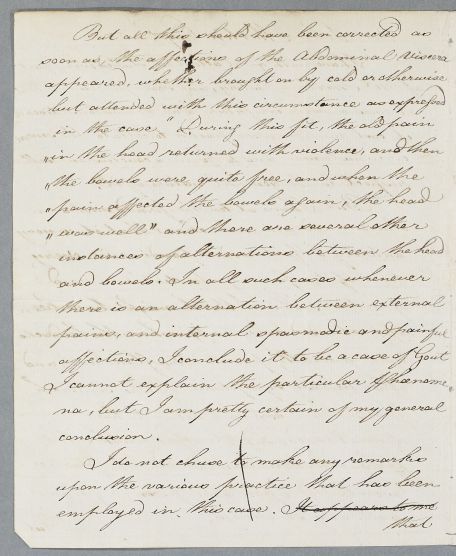 But all this should have been corrected as
soon as the affections of the Abdominal Viscera
appeared, whether brought on by cold or otherwise
but attended with this circumstance as expressed
in the case "During this fit, the old pain
"in the head returned with violence, and then
"the bowels were quite free, and when the
"pain affected the bowels again, the head
"was well" and there are several other
instances of alternations between the head
and bowels. In all such cases whenever
there is an alternation between external
pains, and internal spasmodic and painful
affections, I conclude it to be a case of Gout
I cannot explain the particular Phænome
na, but I am pretty certain of my general
conclusion.
I do not chuse to make any remarks
upon the various practice that has been
employed in this case. It appears to me
that